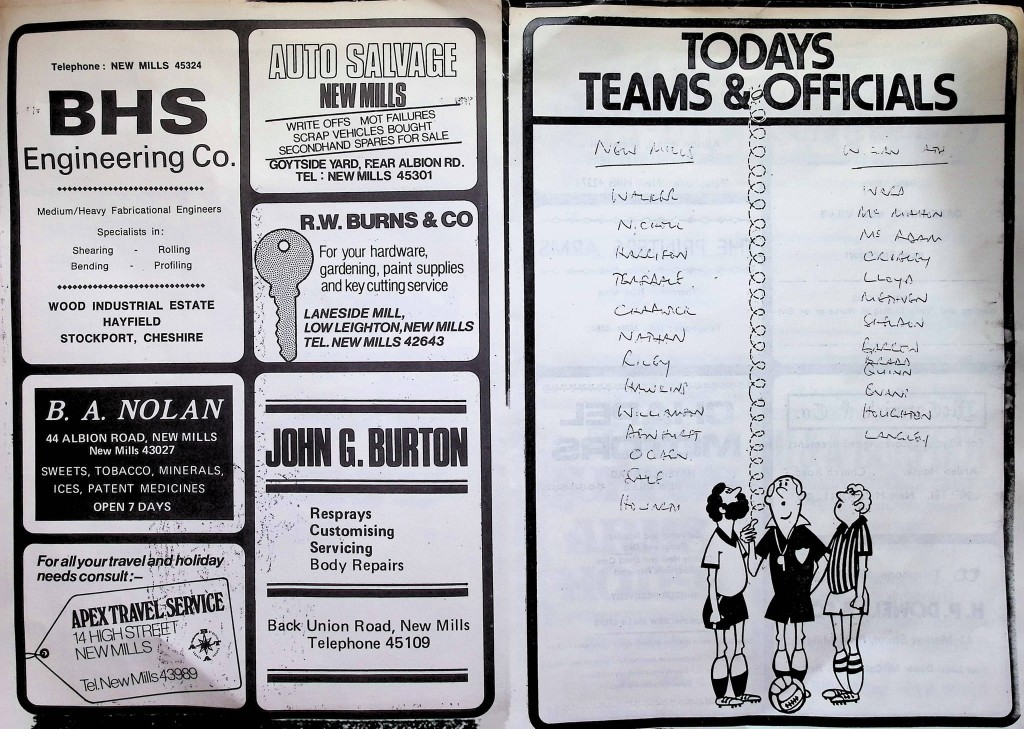 Telephone : NEW MILLS 45324
BHS
Engineering Co.
Medium/Heavy Fabricational Engineers
Specialists in:
Shearing - Rolling
Bending - Profiling
WOOD INDUSTRIAL ESTATE
HAYFIELD
STOCKPORT, CHESHIRE
AUTO SALVAGE
NEW MILLS
WRITE OFFS MOT FAILURES
SCRAP VEHICLES BOUGHT
SECONDHAND SPARES FOR SALE
GOYTSIDE YARD, REAR ALBION RD.
TEL : NEW MILLS 45301
R.W. BURNS & CO
For your hardware,
gardening, paint supplies
and key cutting service
LANESIDE MILL,
LOW LEIGHTON, NEW MILLS
TEL. NEW MILLS 42643
B. A. NOLAN
44 ALBION ROAD, NEW MILLS
New Mills 43027
SWEETS, TOBACCO, MINERALS,
ICES, PATENT MEDICINES
OPEN 7 DAYS
JOHN G. BURTON
Resprays
Customising
Servicing
Body Repairs
Back Union Road, New Mills
Telephone 45109
For all your travel and holiday
needs consult:—
APEX TRAVEL SERVICE
14 HIGH STREET
NEW MILLS
Tel. New Mills 43989
TODAYS
TEAMS & OFFICIALS
NEW MILLS
WALKER
HARRISON
NATHAN
RILEY
HAWKINS
WILLIMAN
HOLMES
WARD
MC MAHON
MC ADAM
LLOYD
QUINN
EVANS
HOUGHTON
LANGLEY